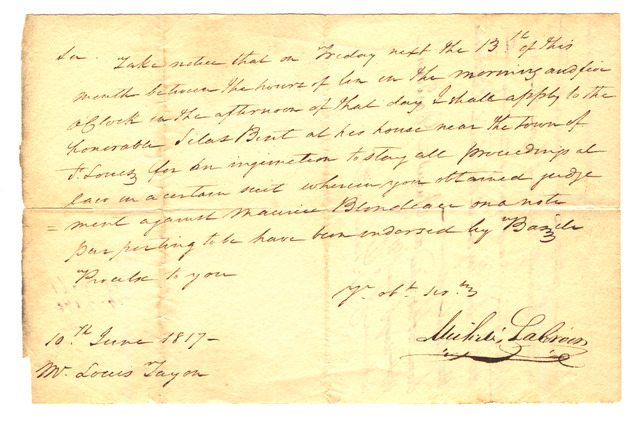 Sir. Take notice that on Friday next the 13th of this
month between the hours of ten in the morning and five
oClock in the afternoon of that day I shall apply to the
honorable Silas Bent at his house near the town of
St Louis for an injunction to stay all proceedings at
law in a certain suit wherein you obtained judge
=ment against Maurice Blondeau on a note
purporting to be have been endorsed by
to you
Yr obt
10th June 1817-
Mr. Louis Tayon